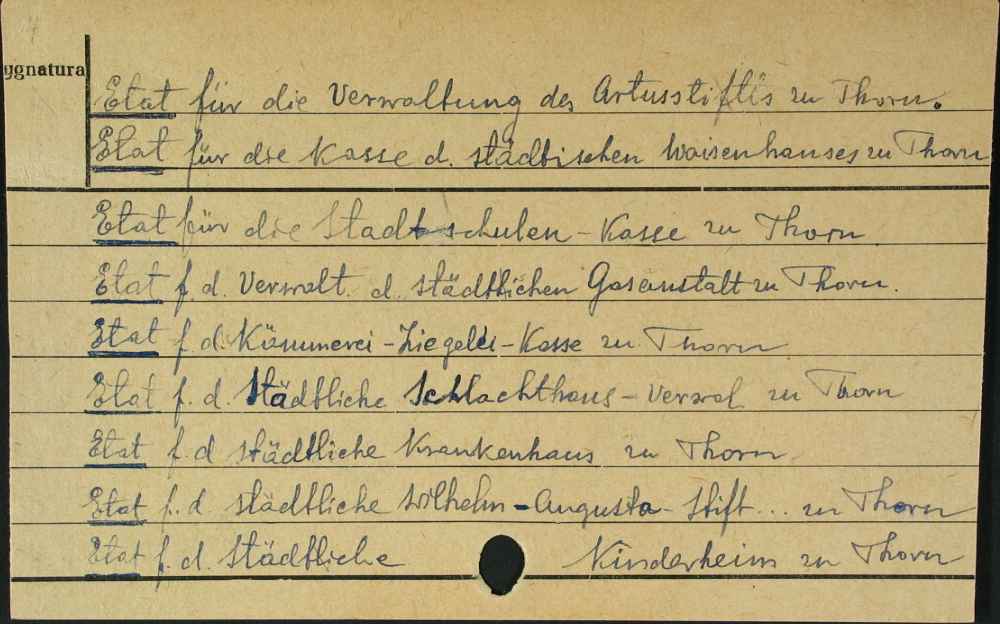 ygnatura
Etat für die Verwaltung des Artusstiftes zu Thorn.
Etat für die Kasse d. städtischen Waisenhauses zu Thorn
Etat für die Stadtschulen-Kasse zu Thorn
Etat f. d. Verwalt. d. städtlichen Gasanstalt zu Thorn.
Etat f d. Kämmerei-Ziegelei-Kasse zu Thorn
Etat f. d. städtliche Schlachthaus-Verwal zu Thorn
Etat f. d städtliche Krankenhaus zu Thorn.
Etat f. d städtliche Wilhelm-Augusta-Stift... zu Thorn
Etat f. d. städtliche Kinderheim zu Thorn